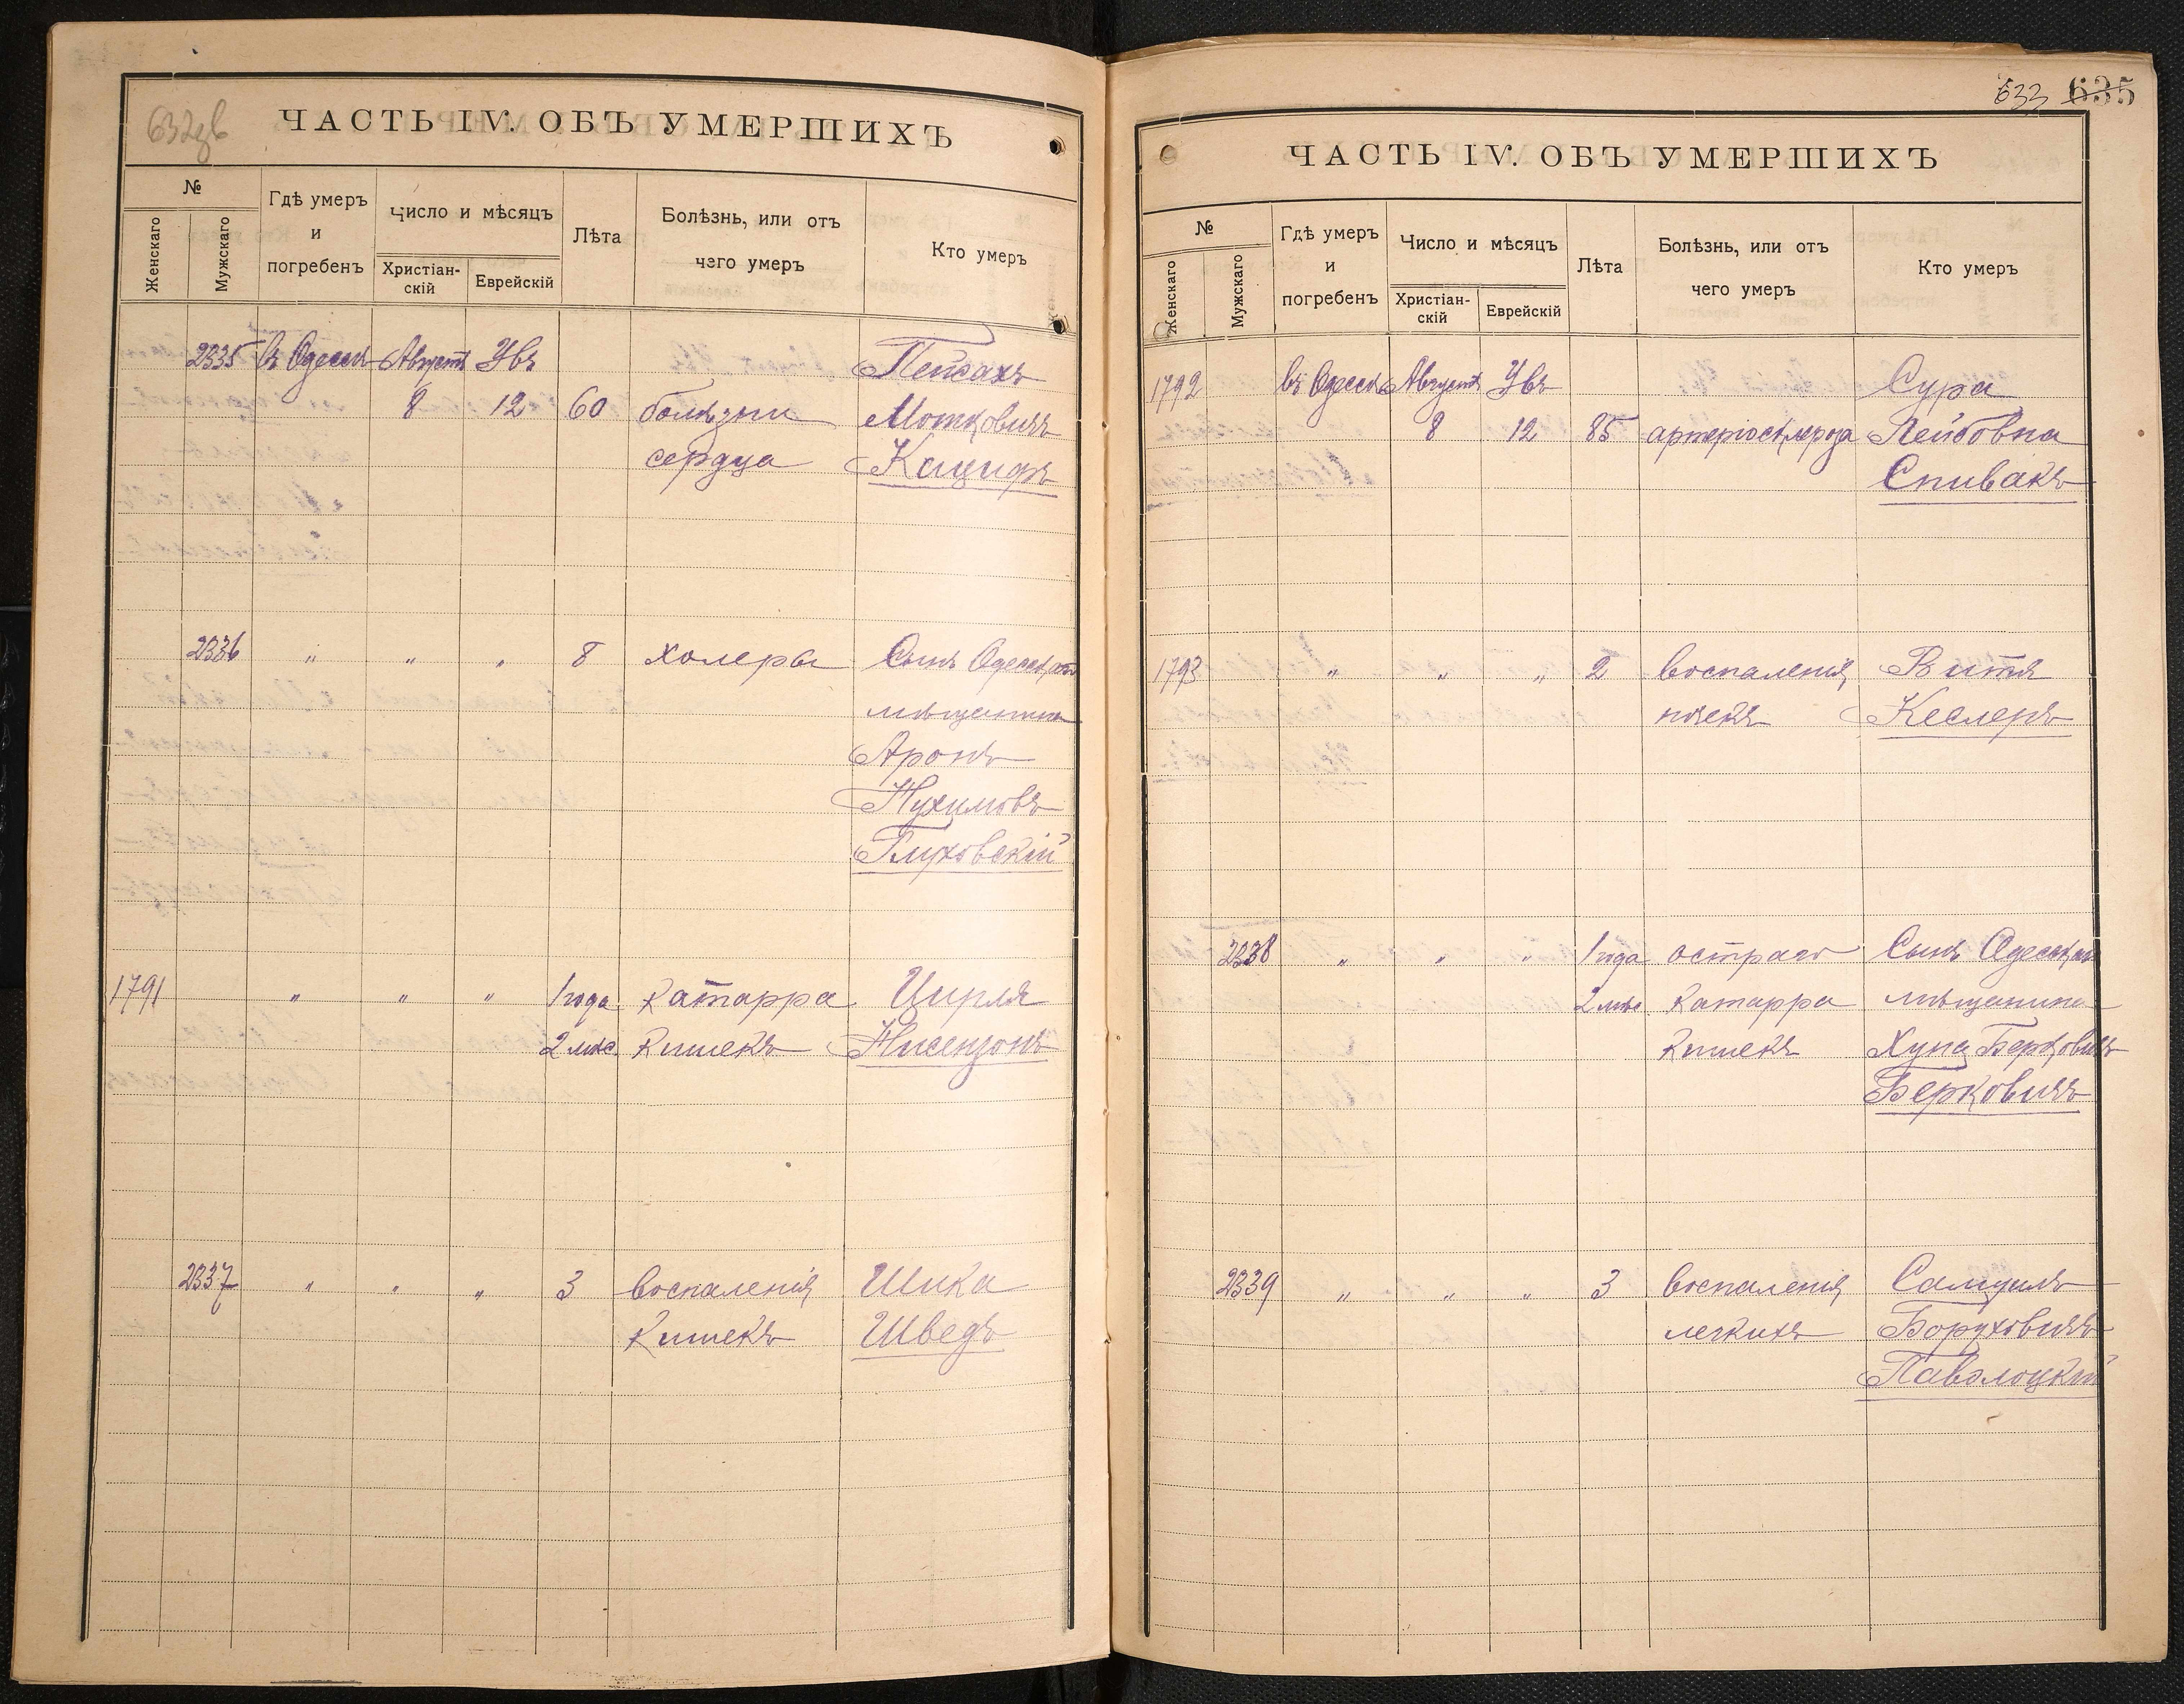 632зв
ЧАСТЬ IV. ОБЪ УМЕРШИХЪ
№
Женскаго
Мужскаго
Гдѣ умеръ
и
погребенъ
Число и мѣсяцъ
Христіан-
скій
Еврейскій
Лѣта
Болѣзнь, или отъ
чего умеръ
Кто умеръ
2335 въ Одессѣ Августъ Увъ Пейсахъ
8 12 60 болѣзни Мотковичъ
сердца Кациръ
2336 " " " 8 холеры Сынъ Одесскаго
мѣщанина
Аронъ
Нухимовъ
Глуховскій
1791 " " " 1 года катарра Цирля
2 мѣс. кишекъ Нисензонъ
2337 " " " 3 воспаленія Шика
кишекъ Шведъ
633 635
ЧАСТЬ IV. ОБЪ УМЕРШИХЪ
№
Женскаго
Мужскаго
Гдѣ умеръ
и
погребенъ
Число и мѣсяцъ
Христіан-
скій
Еврейскій
Лѣта
Болѣзнь, или отъ
чего умеръ
Кто умеръ
1792 въ Одессѣ Августъ Увъ Сура
8 12 85 артеріосклероза Лейбовна
Спивакъ
1793 " " " 2 воспаленія Витя
почекъ Кеслеръ
2338 " " " 1 года остраго Сынъ Одесскаго
2 мѣс катарра мѣщанина
кишекъ Хуна Берковичъ
Берковичъ
2339 " " " 3 воспаленія Самуилъ
легкихъ Боруховичъ
Паволоцкій